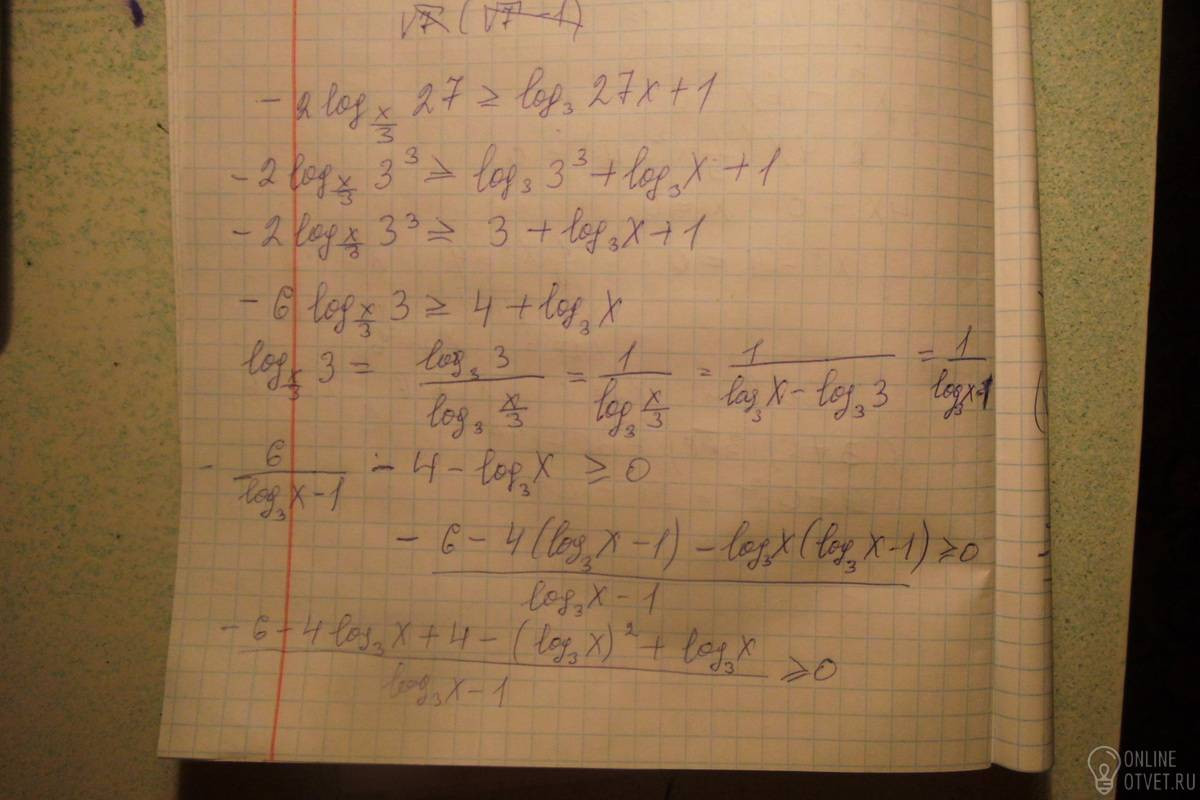 √7 (√7 - 1)
- 2 log_{x/3} 27 ≥ log₃ 27x + 1
- 2 log_{x/3} 3³ ≥ log₃ 3³ + log₃ x + 1
- 2 log_{x/3} 3³ ≥ 3 + log₃ x + 1
- 6 log_{x/3} 3 ≥ 4 + log₃ x
log_{x/3} 3 = log₃ 3 / log₃ x/3 = 1 / log₃ x/3 = 1 / (log₃ x - log₃ 3) = 1 / (log₃ x - 1)
- 6 / (log₃ x - 1) - 4 - log₃ x ≥ 0
(- 6 - 4 (log₃ x - 1) - log₃ x (log₃ x - 1)) / (log₃ x - 1) ≥ 0
(- 6 - 4 log₃ x + 4 - (log₃ x)² + log₃ x) / (log₃ x - 1) ≥ 0
ONLINE
OTVET.RU